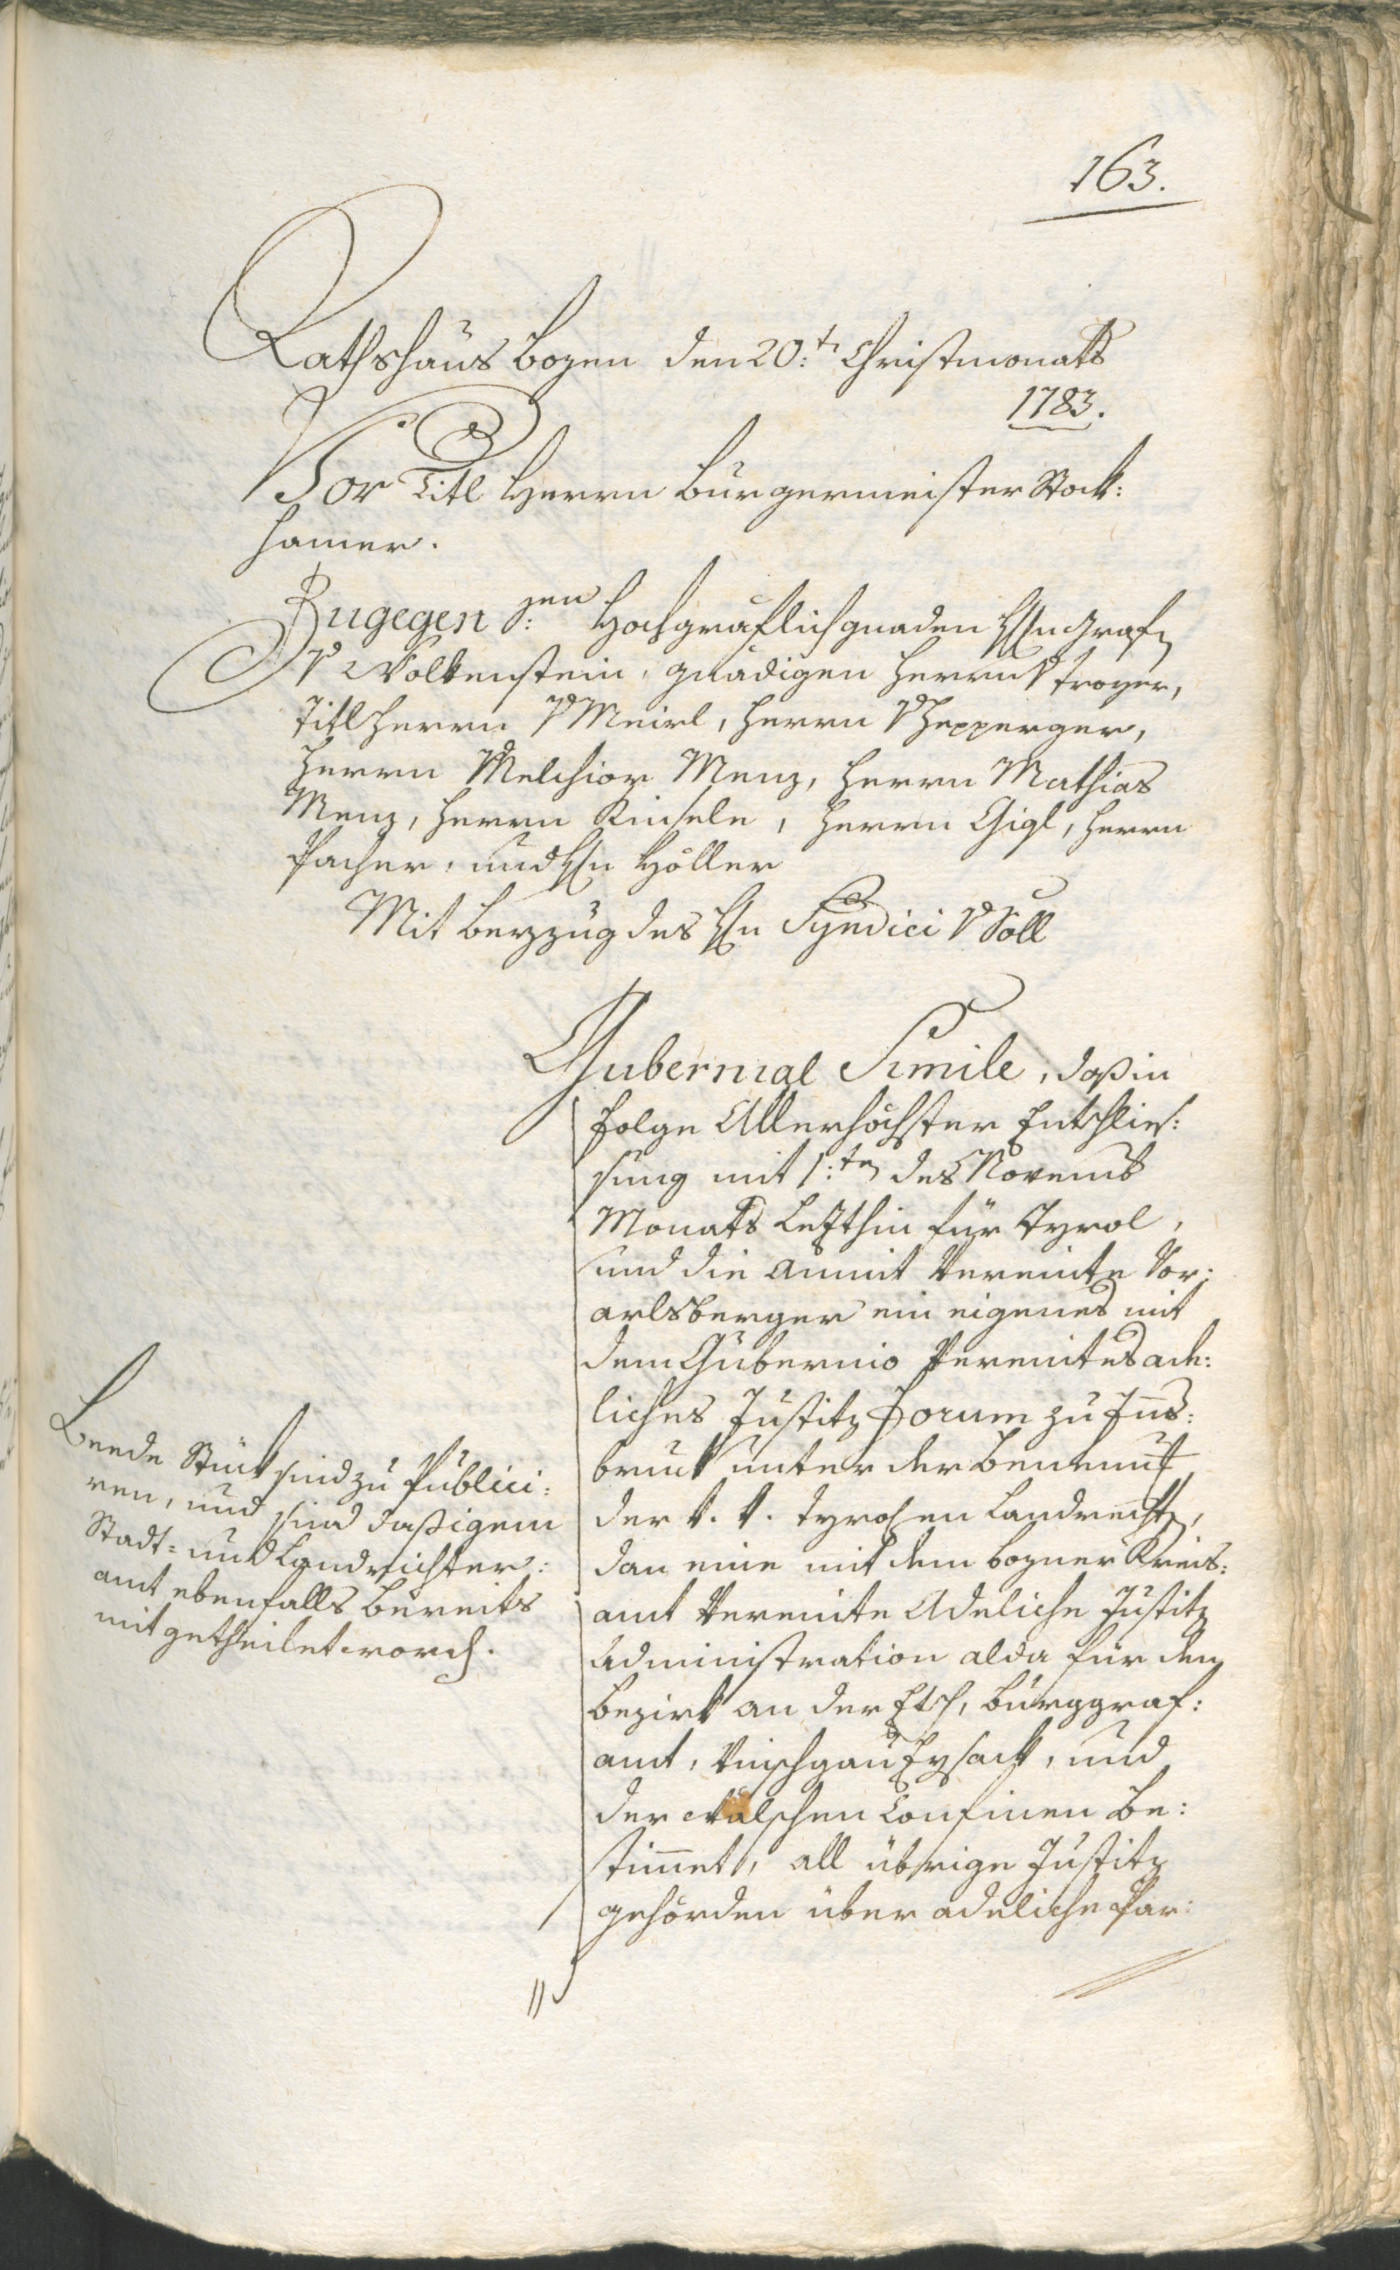 163.
Rathshaus Bozen den 20:ten Christmonats
1783.
Vor Titl Herrn Burgermeister Stock:
hamer.
Zugegen S:nen Hochgräflich gnaden H: Grafen
v Wolkenstein, gnädigen Herrn v Troyer,
Titl Herrn v Meirl, Herrn v Hepperger,
Herrn Melchior Menz, Herrn Mathias
Menz, Herrn Kinsele, Herrn Gigl, Herrn
Pacher, und Hn Höller
Mit Beyzug des Hn Syndici v Söll
Gubernial Simile, daß in
Folge Allerhöchster Entschlies:
sung mit 1:ten des Novemb
Monats Lezthin für Tyrol,
und die anmit Vereinte Vor:
arlsberger ein eigenes mit
dem Gubernio Vereintes ade:
liches Justitz Forum zu Inns:
bruk unter der Benennung
der k. k. tyrolsen Landrechten,
dan eine mit dem Bozner Kreis:
amt Vereinte Adeliche Justitz
Administration alda für den
Bezirk an der Etsch, Burggraf:
amt, Vinschgau Eysack, und
der Wälschen Confinen Be:
stimmet, all übrige Justitz
gehörden über adeliche Par:
Beede Stück sind zu Publici:
ren, und sind dasigem
Stadt- und Landrichter:
amt ebenfalls bereits
mitgetheilet worden.